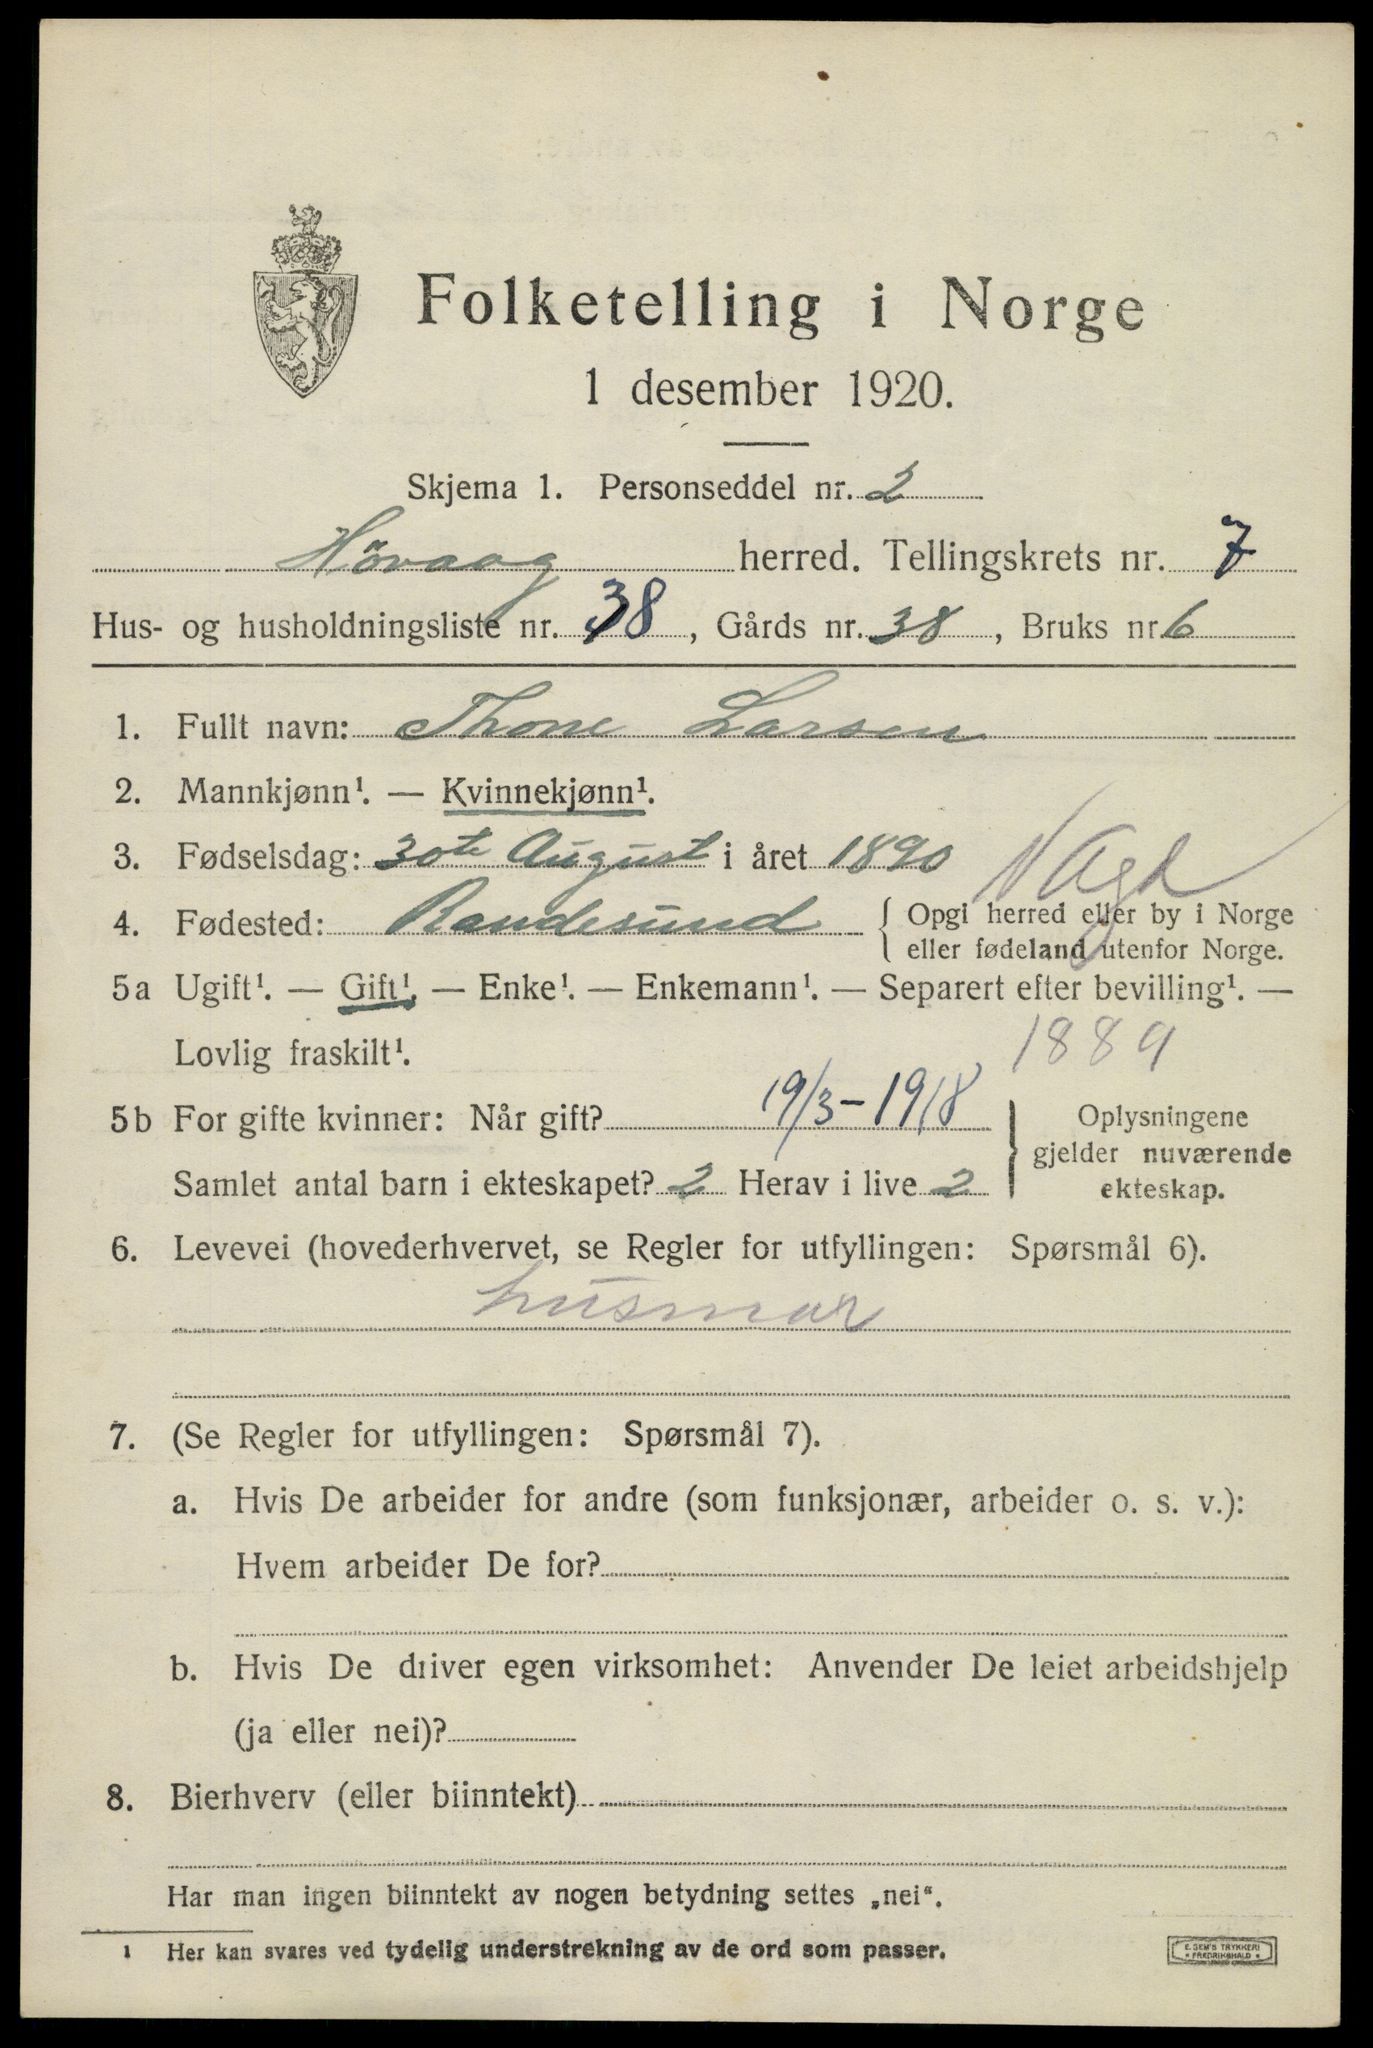 Folketelling i Norge
1 desember 1920.
Skjema 1. Personseddel nr. 2
Høvaag herred. Tellingskrets nr. 7
Hus- og husholdningsliste nr. 38, Gårds nr. 38, Bruks nr 6
1. Fullt navn: Thone Larsen
2. Mannkjønn¹. — Kvinnekjønn¹.
3. Fødselsdag: 30te August i året 1890
V Agd
4. Fødested: Randesund { Opgi herred eller by i Norge
eller fødeland utenfor Norge.
5a Ugift¹. — Gift¹. — Enke¹. — Enkemann¹. — Separert efter bevilling¹. —
Lovlig fraskilt¹. 1889
5b For gifte kvinner: Når gift? 19/3-1918 } Oplysningene
gjelder nuværende
Samlet antal barn i ekteskapet? 2 Herav i live 2 ekteskap.
6. Levevei (hovederhvervet, se Regler for utfyllingen: Spørsmål 6).
husmor
7. (Se Regler for utfyllingen: Spørsmål 7).
a. Hvis De arbeider for andre (som funksjonær, arbeider o. s. v.):
Hvem arbeider De for?
b. Hvis De driver egen virksomhet: Anvender De leiet arbeidshjelp
(ja eller nei)?
8. Bierhverv (eller biinntekt)
Har man ingen biinntekt av nogen betydning settes „nei“.
¹ Her kan svares ved tydelig understrekning av de ord som passer.
E. SEM'S TRYKKERI
FREDRIKSHALD